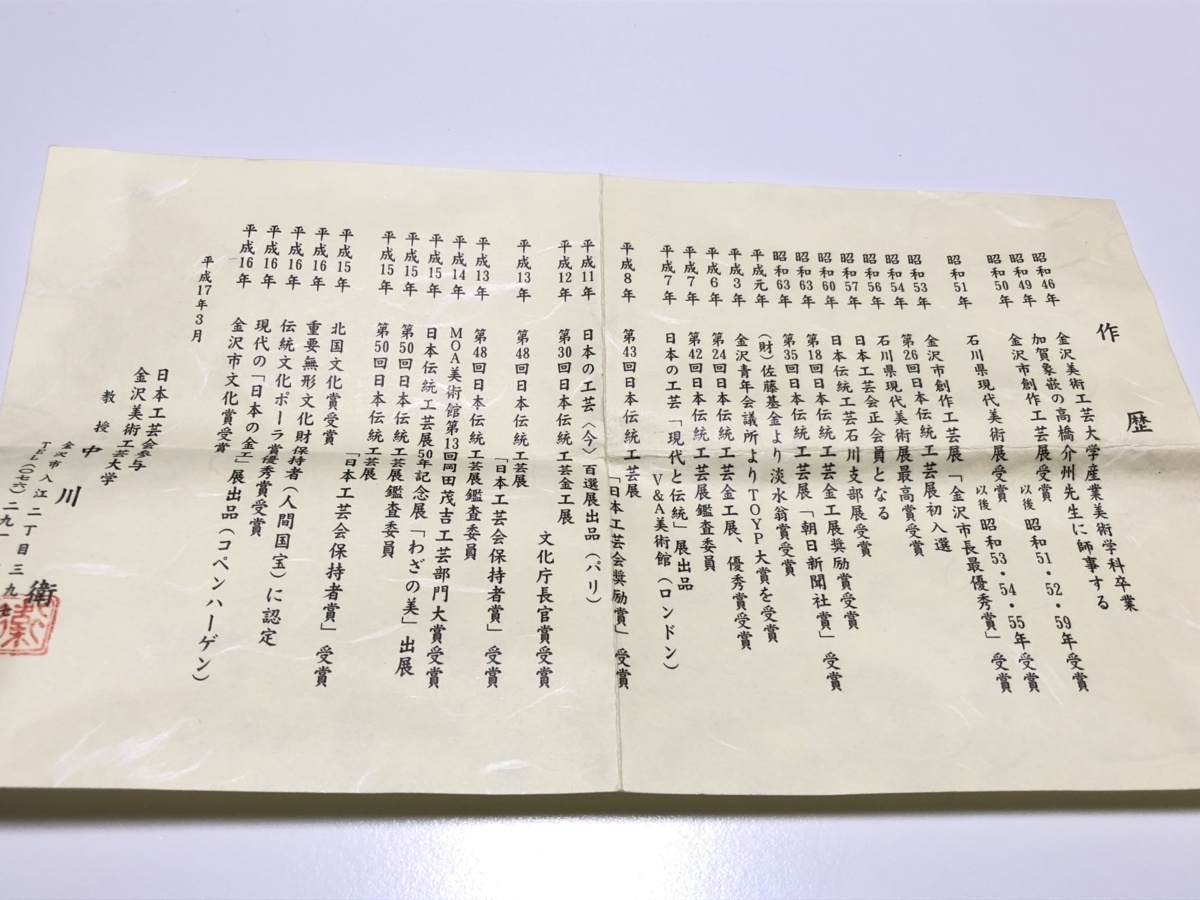 作歴
昭和46年 金沢美術工芸大学産業美術学科卒業
昭和49年 加賀象嵌の高橋介州先生に師事する
昭和50年 金沢市創作工芸展受賞 以後 昭和51・52・59年受賞
昭和51年 石川県現代美術展受賞 以後 昭和53・54・55年受賞
昭和53年 金沢市創作工芸展「金沢市長最優秀賞」受賞
昭和54年 第26回日本伝統工芸展初入選
昭和56年 石川県現代美術展最高賞受賞
昭和57年 日本工芸会正会員となる
昭和60年 日本伝統工芸石川支部展受賞
昭和63年 第18回日本伝統工芸金工展奨励賞受賞
昭和63年 第35回日本伝統工芸展「朝日新聞社賞」受賞
平成元年 (財)佐藤基金より淡水翁賞受賞
平成3年 金沢青年会議所よりTOYP大賞を受賞
平成6年 第24回日本伝統工芸金工展、優秀賞受賞
平成7年 第42回日本伝統工芸展鑑査委員
平成7年 日本の工芸「現代と伝統」展出品
V&A美術館(ロンドン)
平成8年 第43回日本伝統工芸展「日本工芸会奨励賞」受賞
平成11年 日本の工芸〈今〉百選展出品(パリ)
平成12年 第30回日本伝統工芸金工展
文化庁長官賞受賞
平成13年 第48回日本伝統工芸展
「日本工芸会保持者賞」受賞
平成13年 第48回日本伝統工芸展鑑査委員
平成14年 MOA美術館第13回岡田茂吉工芸部門大賞受賞
平成15年 日本伝統工芸展50年記念展「わざの美」出展
平成15年 第50回日本伝統工芸展鑑査委員
平成15年 第50回日本伝統工芸展
「日本工芸会保持者賞」受賞
平成15年 北国文化賞受賞
平成16年 重要無形文化財保持者(人間国宝)に認定
平成16年 伝統文化ポーラ賞優秀賞受賞
平成16年 現代の「日本の金工」展出品(コペンハーゲン)
平成16年 金沢市文化賞受賞
平成17年3月
日本工芸会参与
金沢美術工芸大学
教授 中川 衛
金沢市入江二丁目三九